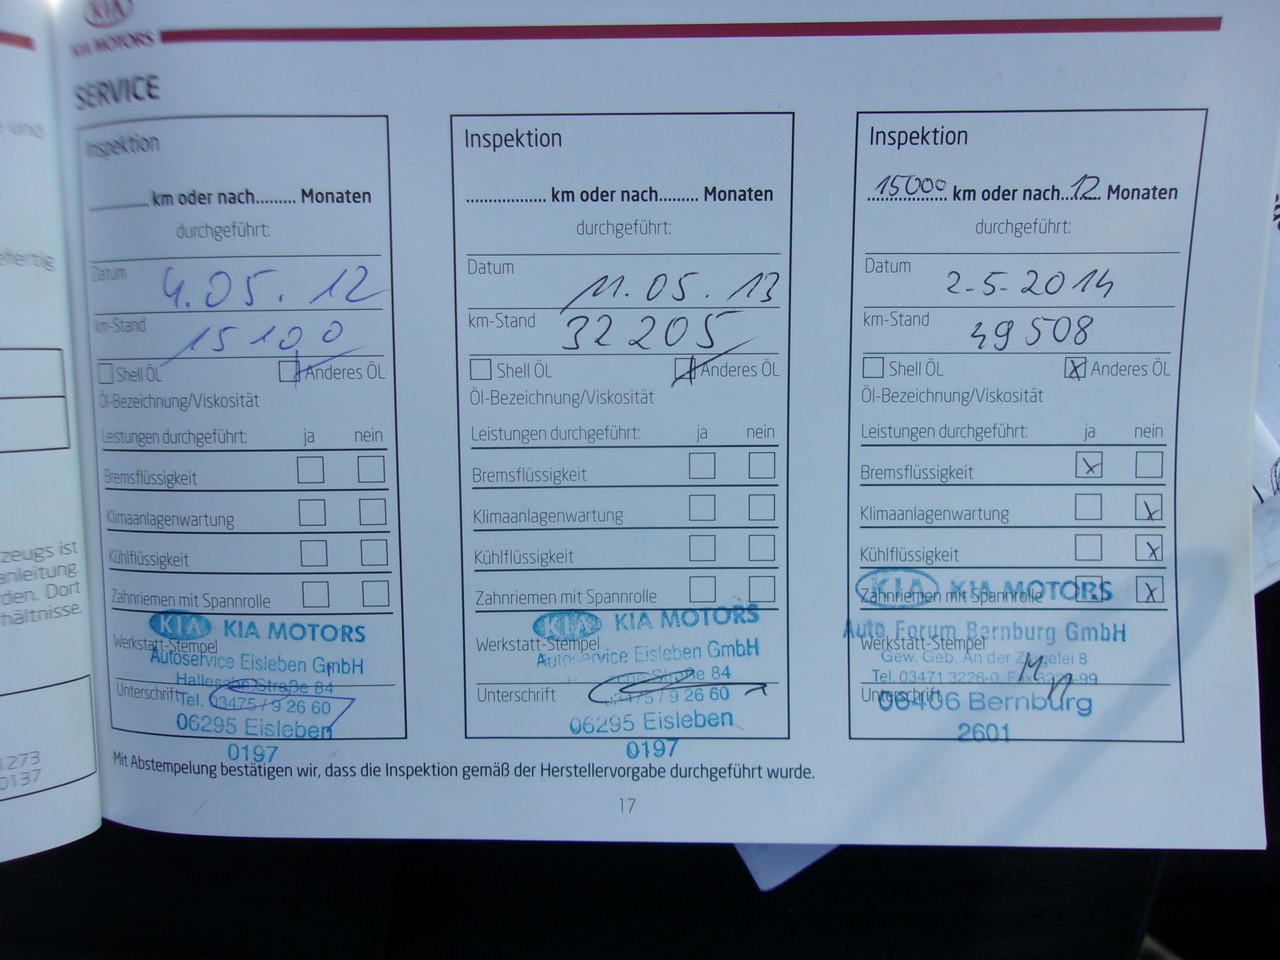 KIA
KIA MOTORS
SERVICE
Inspektion
km oder nach......... Monaten
durchgeführt:
Datum 4.05.12
km-Stand 15100
Shell ÖL Anderes ÖL
Öl-Bezeichnung/Viskosität
Leistungen durchgeführt: ja nein
Bremsflüssigkeit
Klimaanlagenwartung
Kühlflüssigkeit
Zahnriemen mit Spannrolle
KIA KIA MOTORS
Werkstatt-Stempel
Autoservice Eisleben GmbH
Hallesche Straße 84
Unterschrift
Tel. 03475 / 9 26 60
06295 Eisleben
0197
Inspektion
................... km oder nach......... Monaten
durchgeführt:
Datum 11.05.13
km-Stand 32205
Shell ÖL Anderes ÖL
Öl-Bezeichnung/Viskosität
Leistungen durchgeführt: ja nein
Bremsflüssigkeit
Klimaanlagenwartung
Kühlflüssigkeit
Zahnriemen mit Spannrolle
KIA KIA MOTORS
Werkstatt-Stempel
Autoservice Eisleben GmbH
Straße 84
Unterschrift
03475 / 9 26 60
06295 Eisleben
0197
Inspektion
15000 km oder nach 12 Monaten
durchgeführt:
Datum 2-5-2014
km-Stand 49508
Shell ÖL x Anderes ÖL
Öl-Bezeichnung/Viskosität
Leistungen durchgeführt: ja nein
Bremsflüssigkeit x
Klimaanlagenwartung x
Kühlflüssigkeit x
Zahnriemen mit Spannrolle x
KIA KIA MOTORS
Auto Forum Bernburg GmbH
Werkstatt-Stempel
Gew. Geb. An der 8
Tel. 03471 3226-0
Unterschrift
06406 Bernburg
2601
Mit Abstempelung bestätigen wir, dass die Inspektion gemäß der Herstellervorgabe durchgeführt wurde.
17
e und
efertig
zeugs ist
anleitung.
den. Dort
hältnisse.
1273
0137